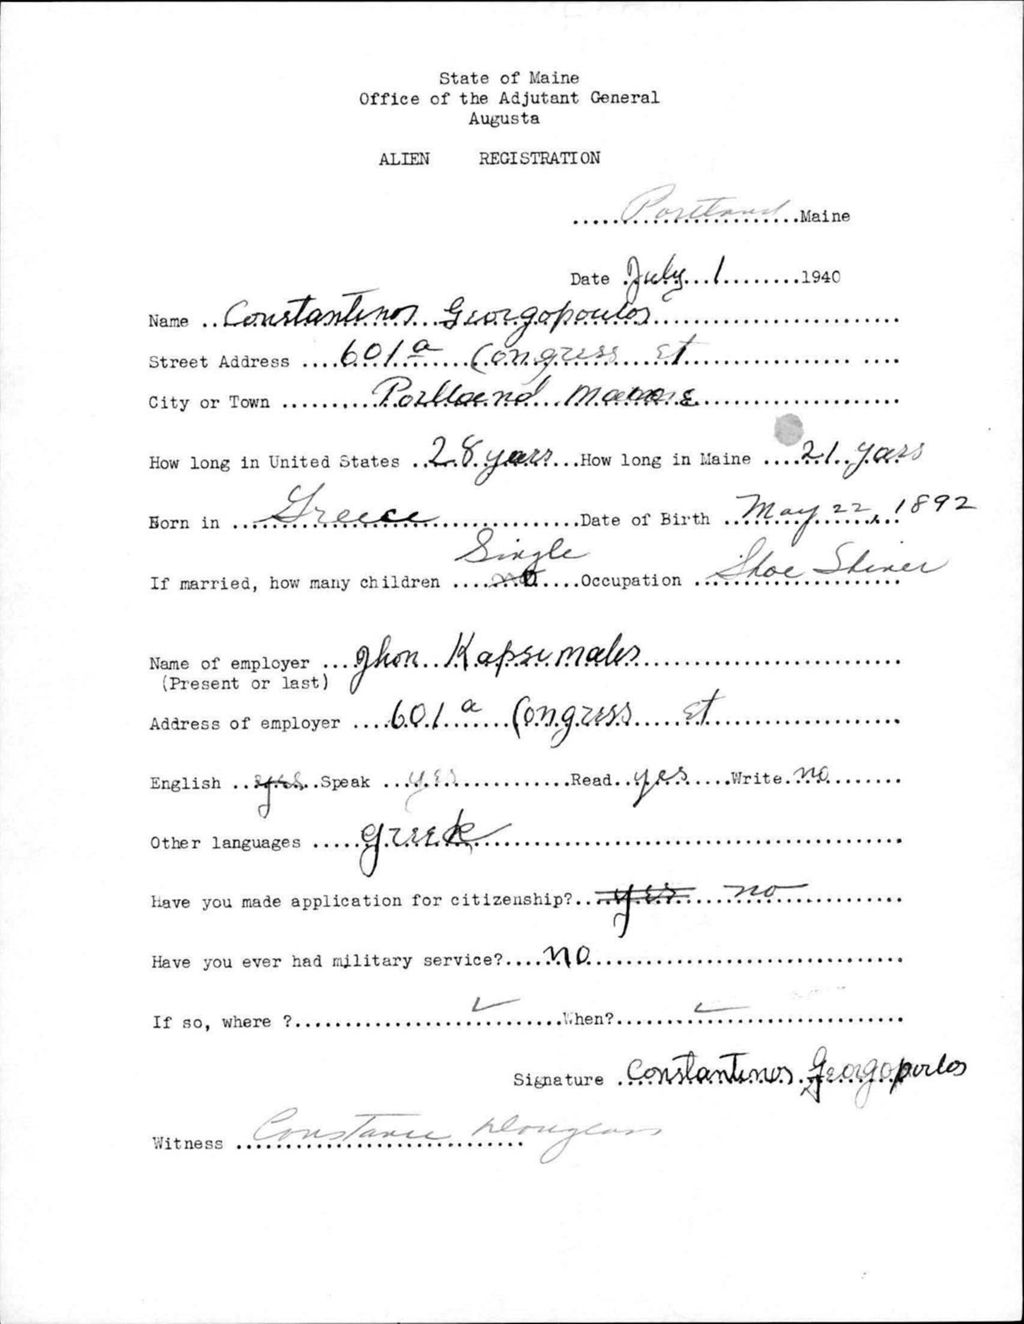 State of Maine
Office of the Adjutant General
Augusta
ALIEN REGISTRATION
.....Portland.....Maine
Date .July...1.........1940
Name ..Constantinos...Georgopoulos..............................
Street Address ....601a.....Congress...st................... ....
City or Town ...........Portland...Maine.........................
How long in United States ..28.years...How long in Maine ....21..years
Born in ...Greece...................Date of Birth ..May 22, 1892
Single
If married, how many children ....no.....Occupation ..Shoe Shiner
Name of employer ...Jhon..Kapsimales..............................
(Present or last)
Address of employer ....601.a....Congress.....st...................
English ..yes..Speak ...yes.............Read..yes.....Write.no........
Other languages .....greek..........................................
Have you made application for citizenship?..yes.....no............
Have you ever had military service?....no...............................
If so, where ?...........................When?............................
Signature .Constantinos.Georgopoulos
Witness ..Constance Douglass